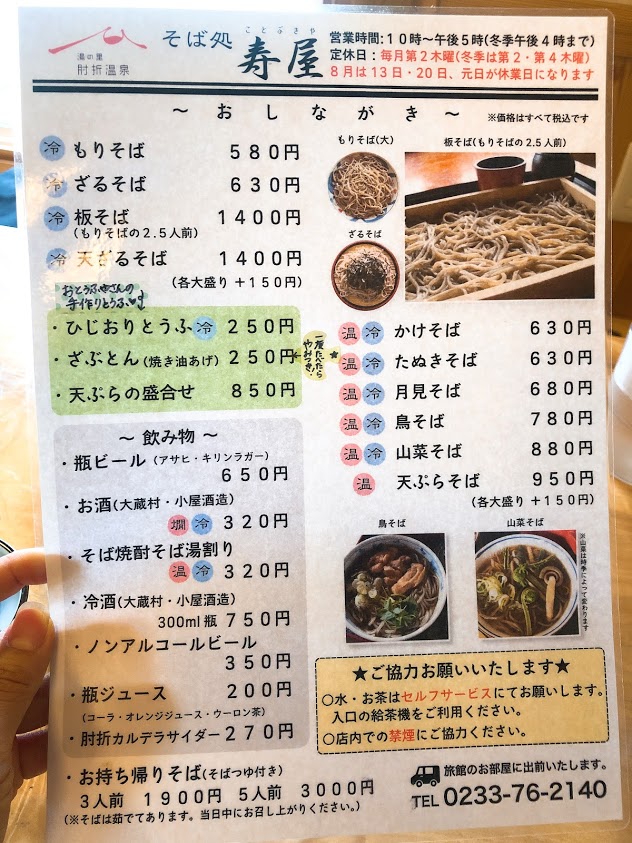 湯の里
肘折温泉
そば処
ことぶきや
寿屋
営業時間:10時～午後5時(冬季午後4時まで)
定休日：毎月第2木曜(冬季は第2・第4木曜)
8月は13日・20日、元日が休業日になります
～おしながき～
※価格はすべて税込です
冷 もりそば 580円
冷 ざるそば 630円
冷 板そば 1400円
(もりそばの2.5人前)
冷 天ざるそば 1400円
(各大盛り+150円)
もりそば(大)
ざるそば
板そば(もりそばの2.5人前)
おとうふやさんの
手作りとうふ
・ひじおりとうふ 冷 250円
・ざぶとん(焼き油あげ) 250円
一度たべたら
やみつき!
・天ぷらの盛合せ 850円
温 冷 かけそば 630円
温 冷 たぬきそば 630円
温 冷 月見そば 680円
温 冷 鳥そば 780円
温 冷 山菜そば 880円
温 天ぷらそば 950円
(各大盛り+150円)
鳥そば
山菜そば
※山菜は時季によって変わります
～飲み物～
・瓶ビール(アサヒ・キリンラガー)
650円
・お酒(大蔵村・小屋酒造)
燗 冷 320円
・そば焼酎そば湯割り
温 冷 320円
・冷酒(大蔵村・小屋酒造)
300ml瓶 750円
・ノンアルコールビール
350円
・瓶ジュース 200円
(コーラ・オレンジジュース・ウーロン茶)
・肘折カルデラサイダー 270円
・お持ち帰りそば(そばつゆ付き)
3人前 1900円 5人前 3000円
(※そばは茹でてあります。当日中にお召し上がりください。)
★ご協力お願いいたします★
○水・お茶はセルフサービスにてお願いします。
入口の給茶機をご利用ください。
○店内での禁煙にご協力ください。
旅館のお部屋に出前いたします。
TEL 0233-76-2140